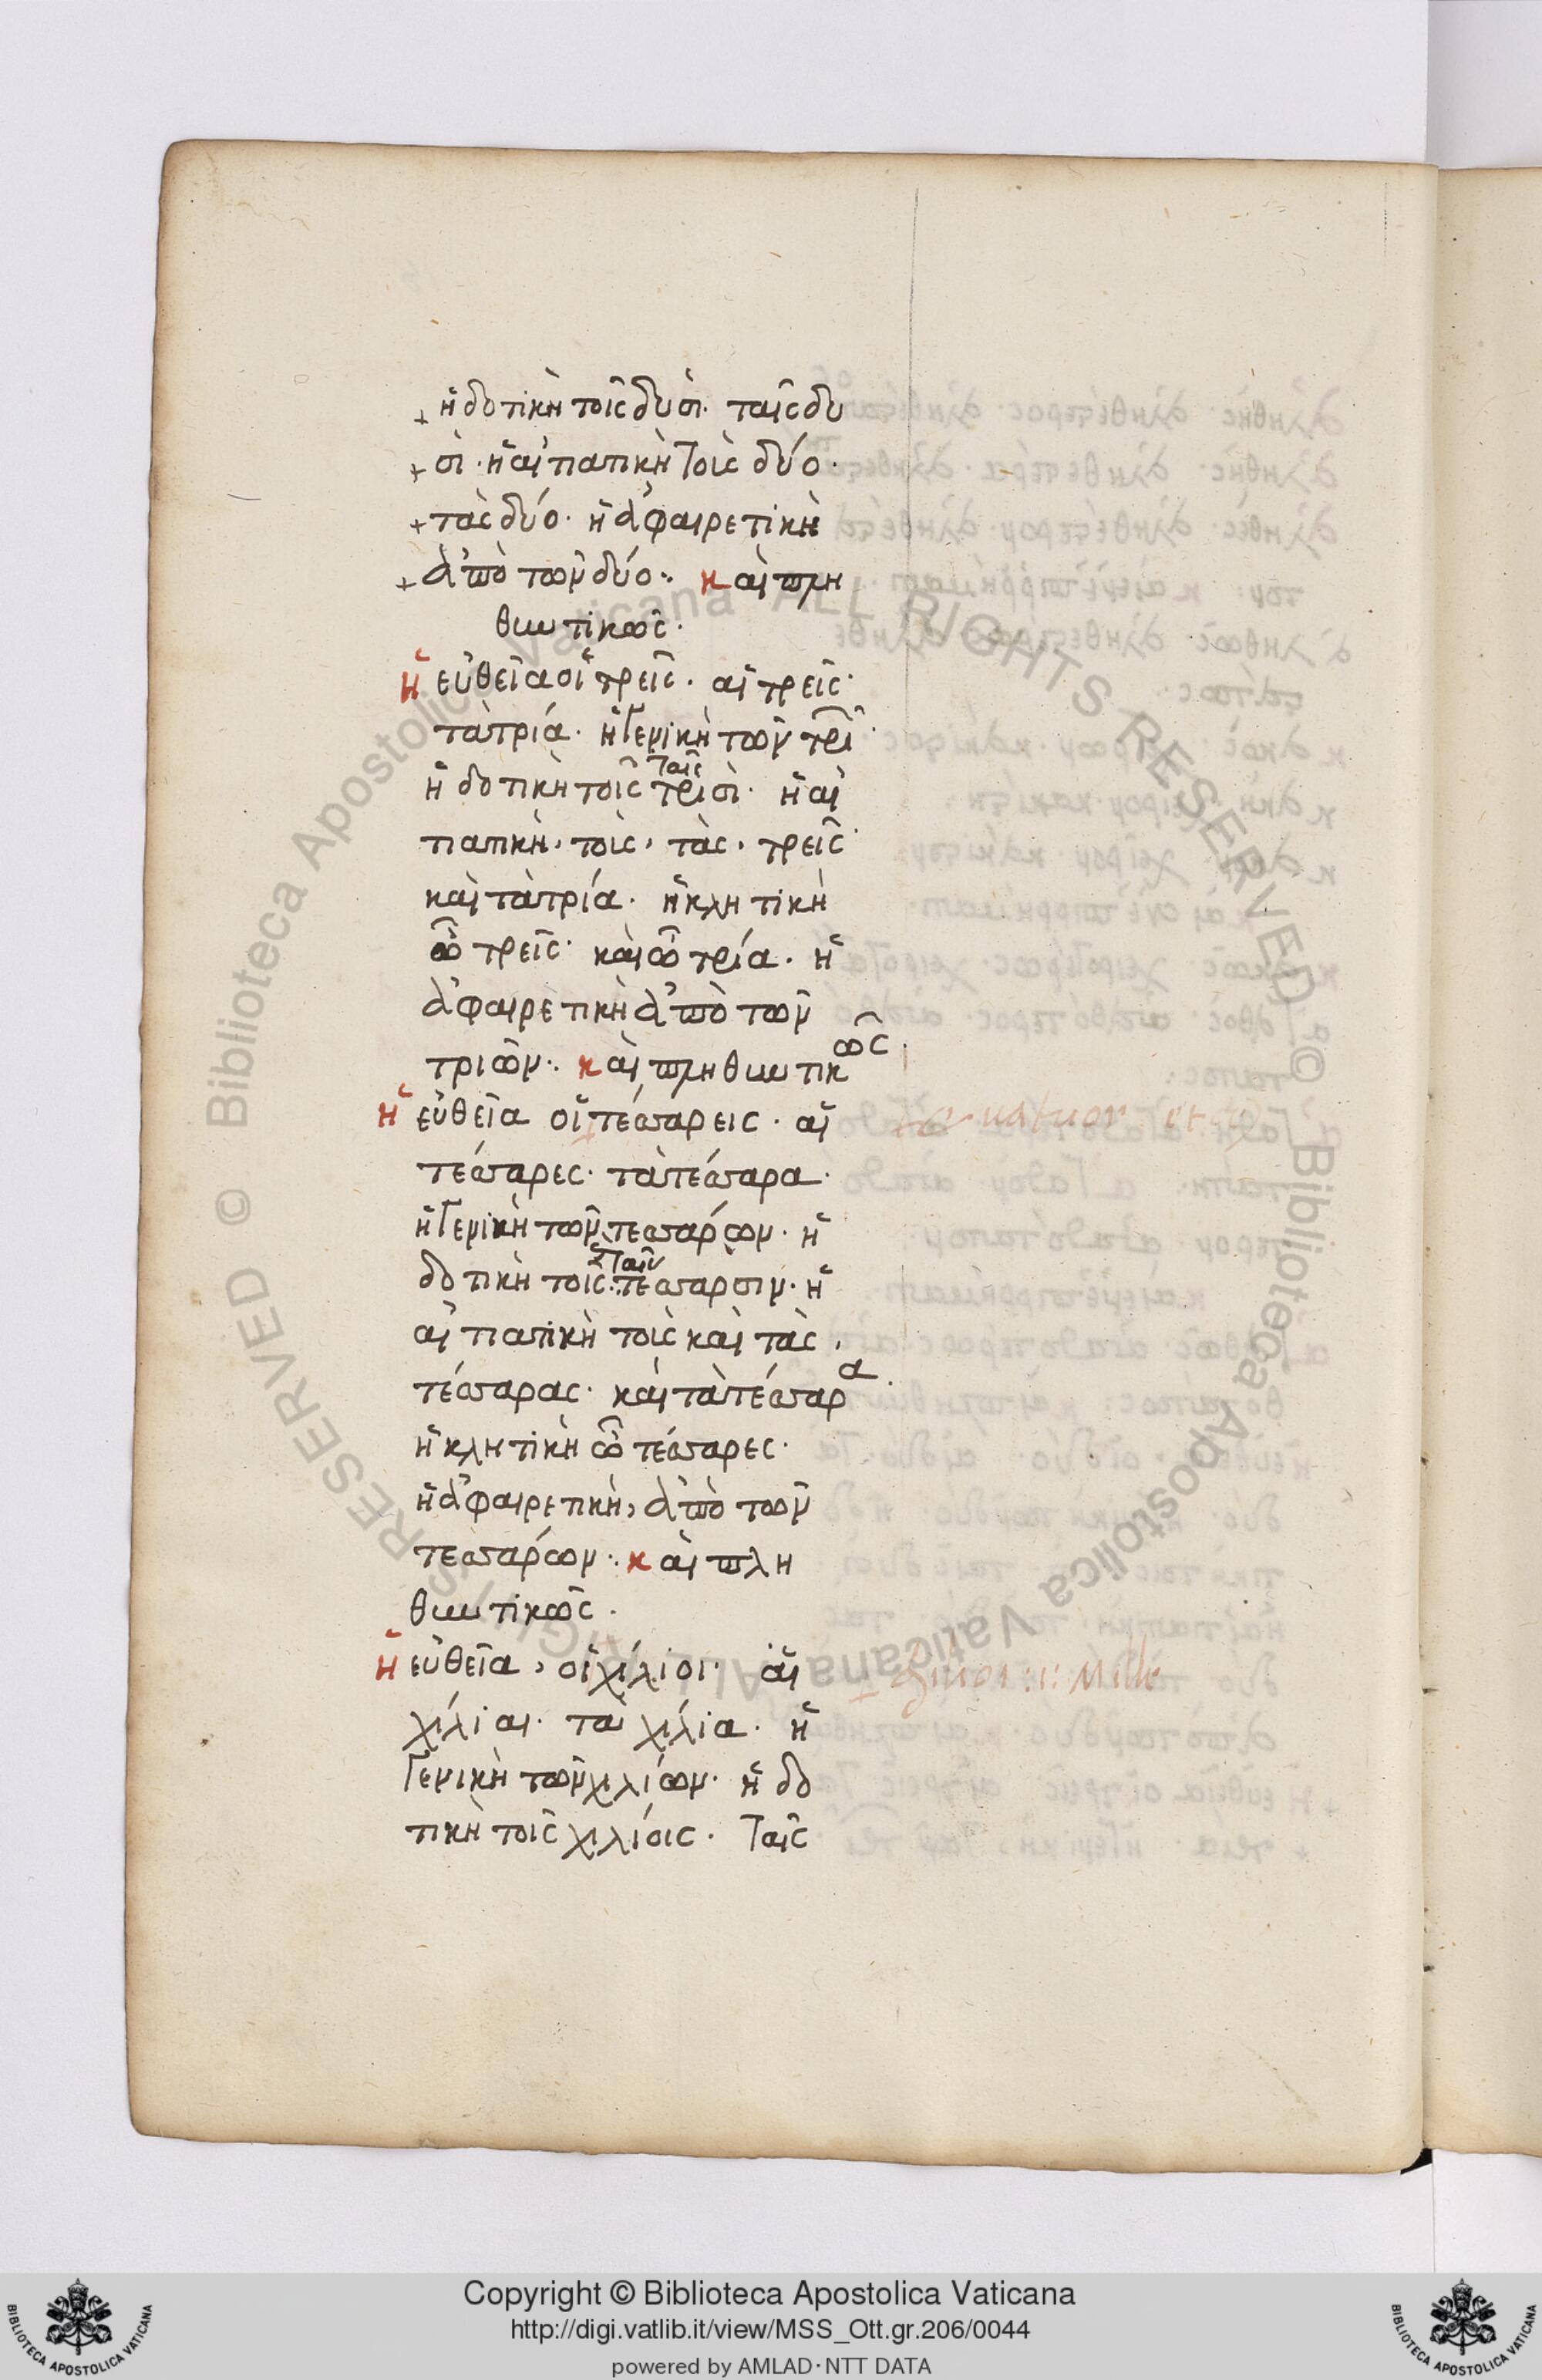 ἡ δοτικὴ τοῖς δυσὶ· ταῖς δυ
σὶ· ἡ αἰτιατικὴ τοὺς δύο·
τὰς δύο· ἡ ἀφαιρετικὴ
ἀπὸ τῶν δύο:· καὶ πλη
θυντικῶς·
ἡ εὐθεῖα οἱ τρεῖς· αἱ τρεῖς·
τὰ τρία· ἡ γενικὴ τῶν τρι·
ταῖς
ἡ δοτικὴ τοῖς τρισὶ· ἡ αἰ
τιατικὴ, τοὺς, τὰς, τρεῖς·
καὶ τὰ τρία· ἡ κλητικὴ
ὦ τρεῖς· καὶ ὦ τρία· ἡ
ἀφαιρετικὴ ἀπὸ τῶν
τριῶν:· καὶ πληθυντικῶς·
ἡ εὐθεῖα οἱ τέσσαρεις· αἱ
quatuor
τέσσαρες· τὰ τέσσαρα·
ἡ γενικὴ τῶν τεσσάρων· ἡ
ταῖς
δοτικὴ τοῖς τέσσαρσιν· ἡ
αἰτιατικὴ τοὺς καὶ τὰς,
τέσσαρας· καὶ τὰ τέσσαρα·
ἡ κλητικὴ ὦ τέσσαρες·
ἡ ἀφαιρετικὴ, ἀπὸ τῶν
τεσσάρων:· καὶ πλη
θυντικῶς·
ἡ εὐθεῖα, οἱ χίλιοι· αἱ
Mille
χίλιαι· τὰ χίλια· ἡ
γενικὴ τῶν χιλίων· ἡ δο
τικὴ τοῖς χιλίοις· ταῖς
© Biblioteca Apostolica Vaticana ALL RIGHTS RESERVED © Biblioteca Apostolica Vaticana ALL RIGHTS RESERVED
Copyright © Biblioteca Apostolica Vaticana
http://digi.vatlib.it/view/MSS_Ott.gr.206/0044
powered by AMLAD·NTT DATA
BIBLIOTECA APOSTOLICA VATICANA
BIBLIOTECA APOSTOLICA VATICANA